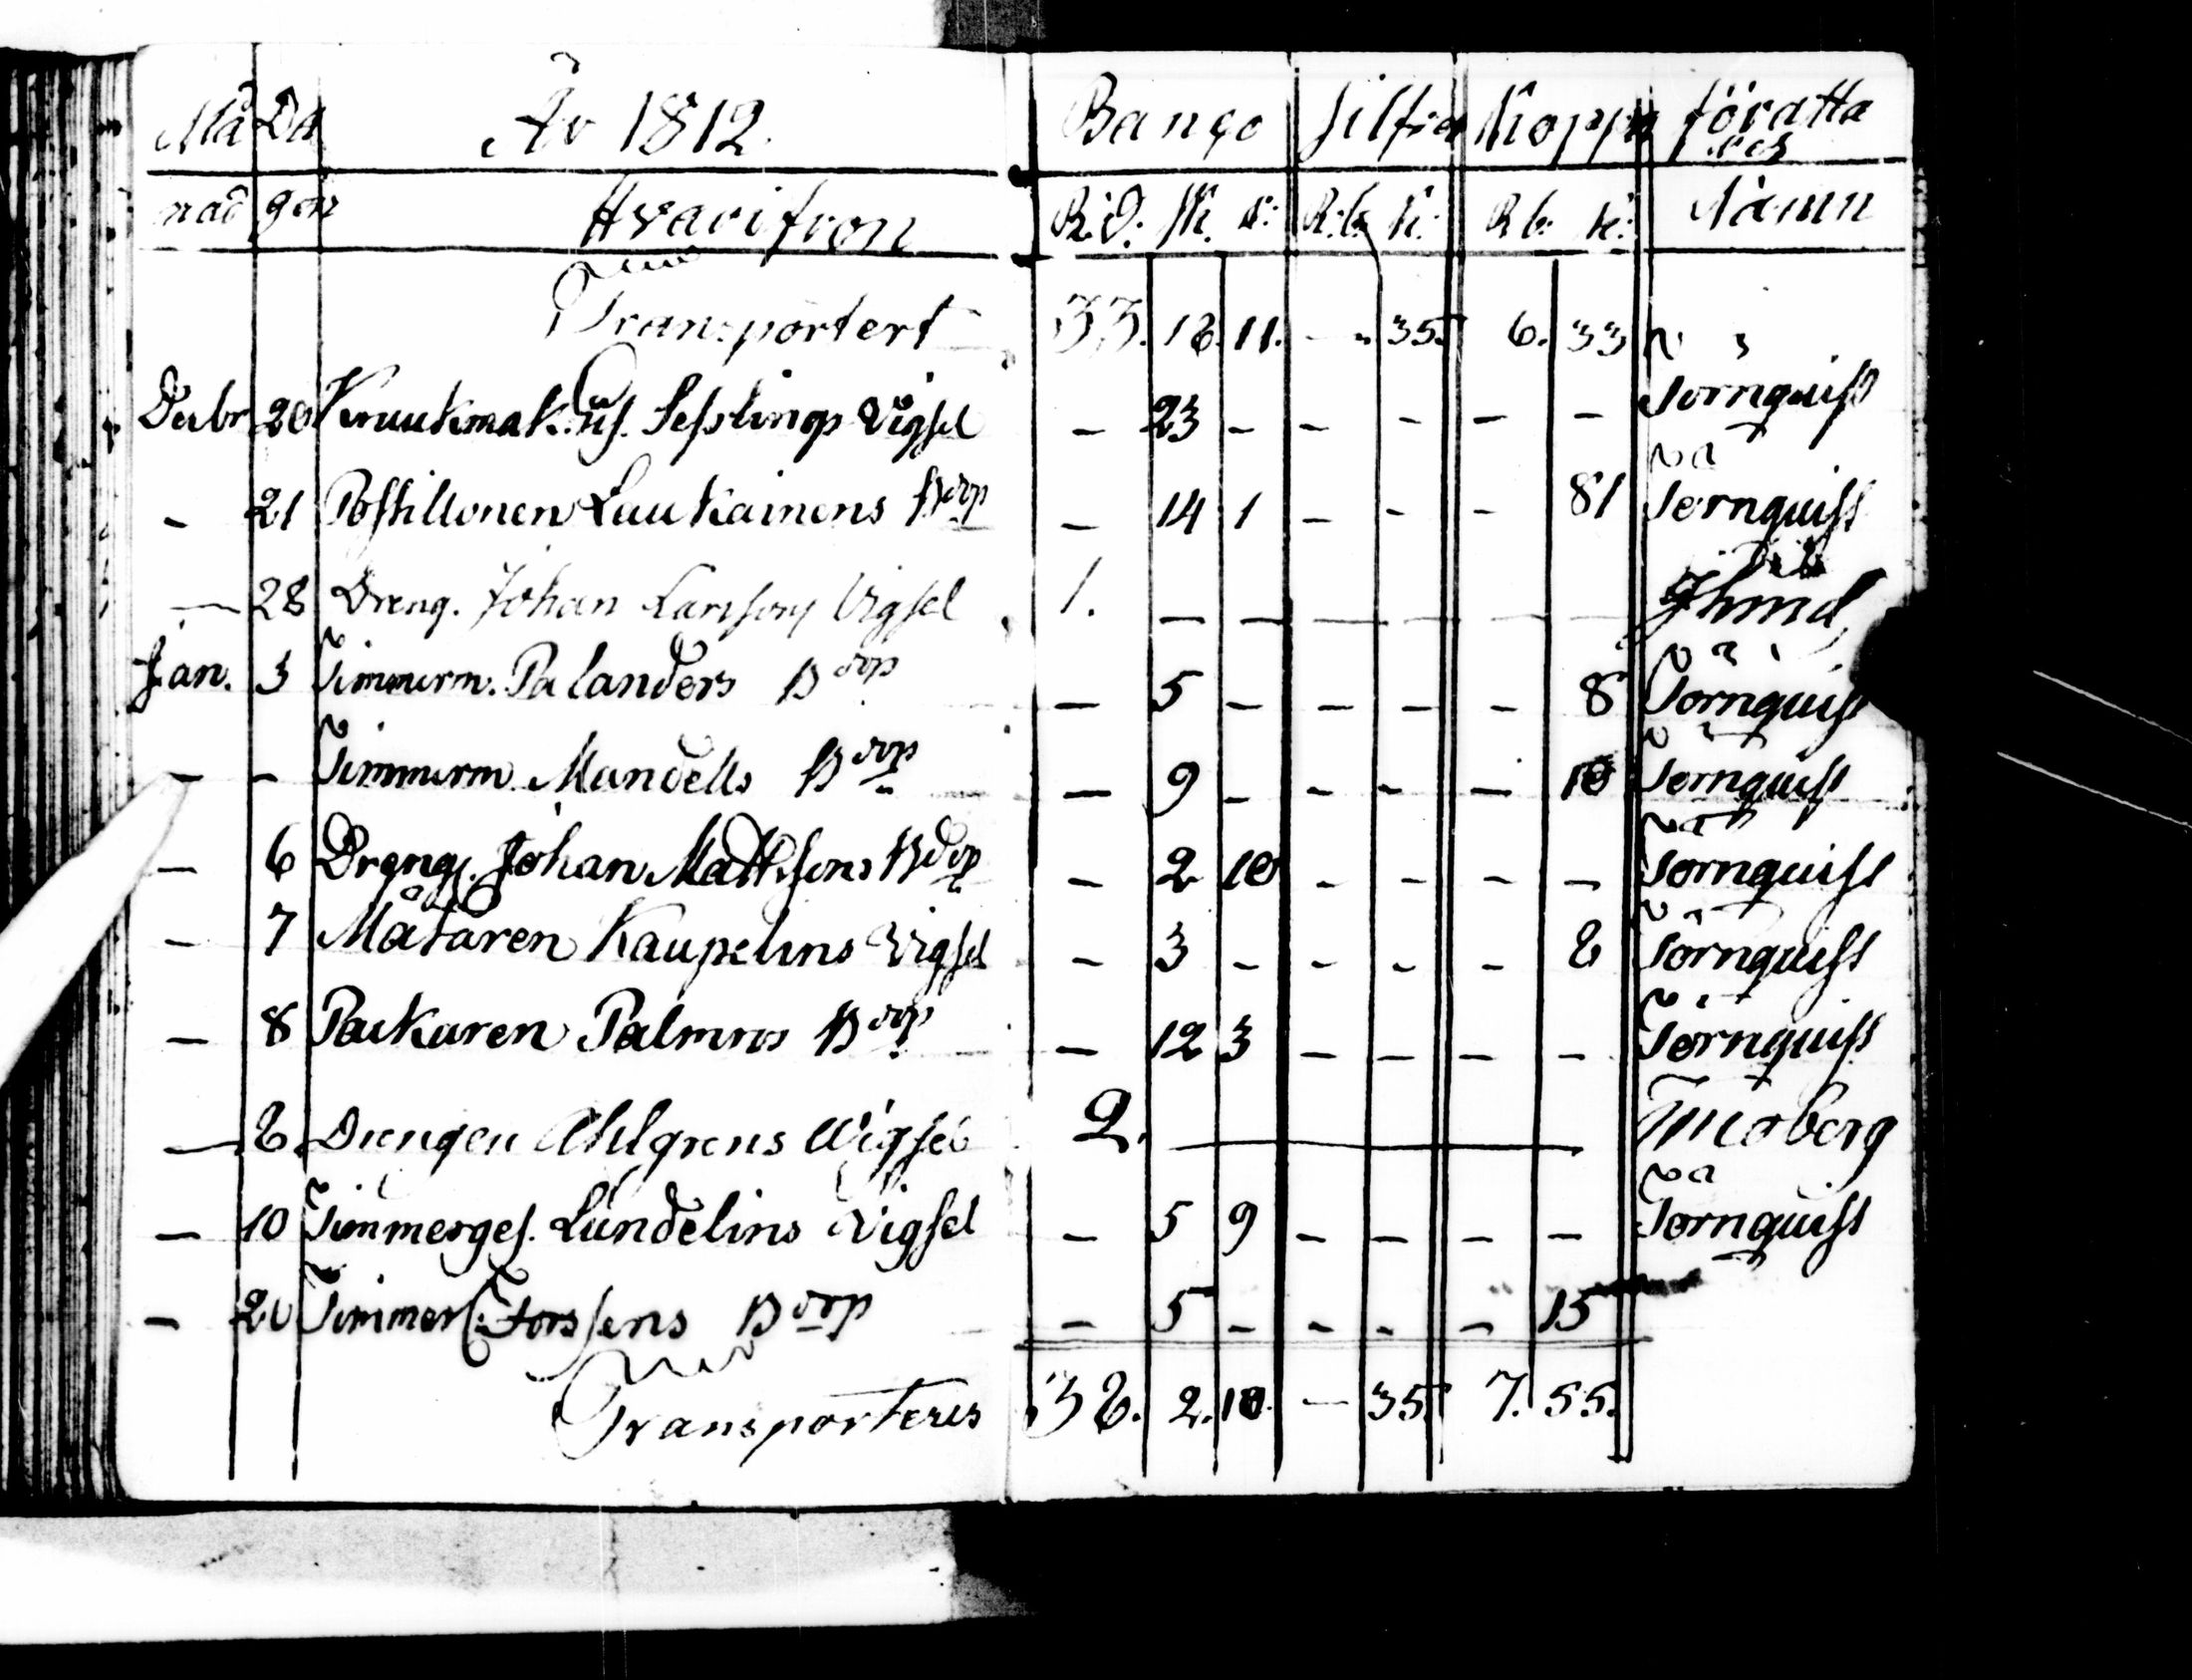 Må Da År 1812. Banco Silfver Kopp. förätta
res
nad gen Hvarifron R:d: sk. r: R:b: k: R b: k: Namn
Transportert 33. 18. 11. - 35. 6. 33
Decbr 20 Kruukmak: Seslings Vigsel - 23 - - - - - Törnquist
- 21 Postillonen Laukainens Bdop - 14 1 - - - 81 Törnquist
- 28 Dreng. Johan Larssons Vigsel 1. - - - - - -
Jan. 3 Timmerm. Palanders Bdop - 5 - - - - 8 Törnquist
- - Timmerm. Mandells Bdop - 9 - - - - 18 Törnquist
- 6 Drengs. Johan Mattssons Bdop - 2 10 - - - - Törnquist
- 7 Mätaren Kaupelins Vigsel - 3 - - - - 8 Törnquist
- 8 Packaren Palmros Bdop - 12 3 - - - - Törnquist
- 8 Drengen Ahlgrens Wigsel 2. - Moberg
- 10 Timmerges. Lundelins Vigsel - 5 9 - - - - Törnquist
- 20 Timmer Forssens Bdop - 5 - - - - 15
Transporteres 38. 2. 10. - 35. 7. 55.